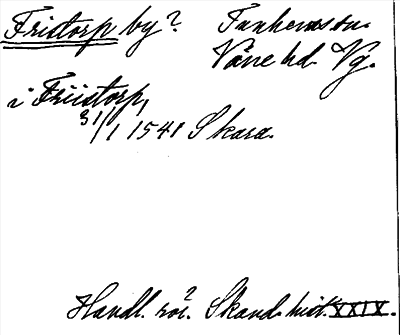 Fristorp by? Tunhems sn.
Väne hd. Vg.
i Friistorp,
31/1 1541 Skara.
Handl. rör. Skand. hist. XXIX.